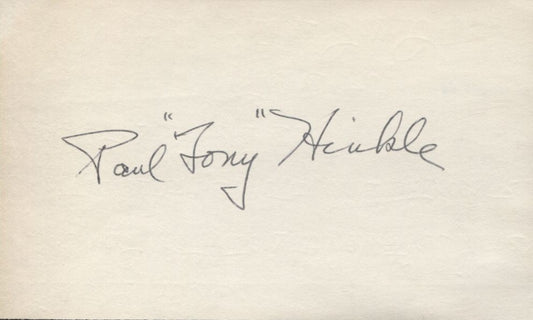 Paul "Tony" Hinkle